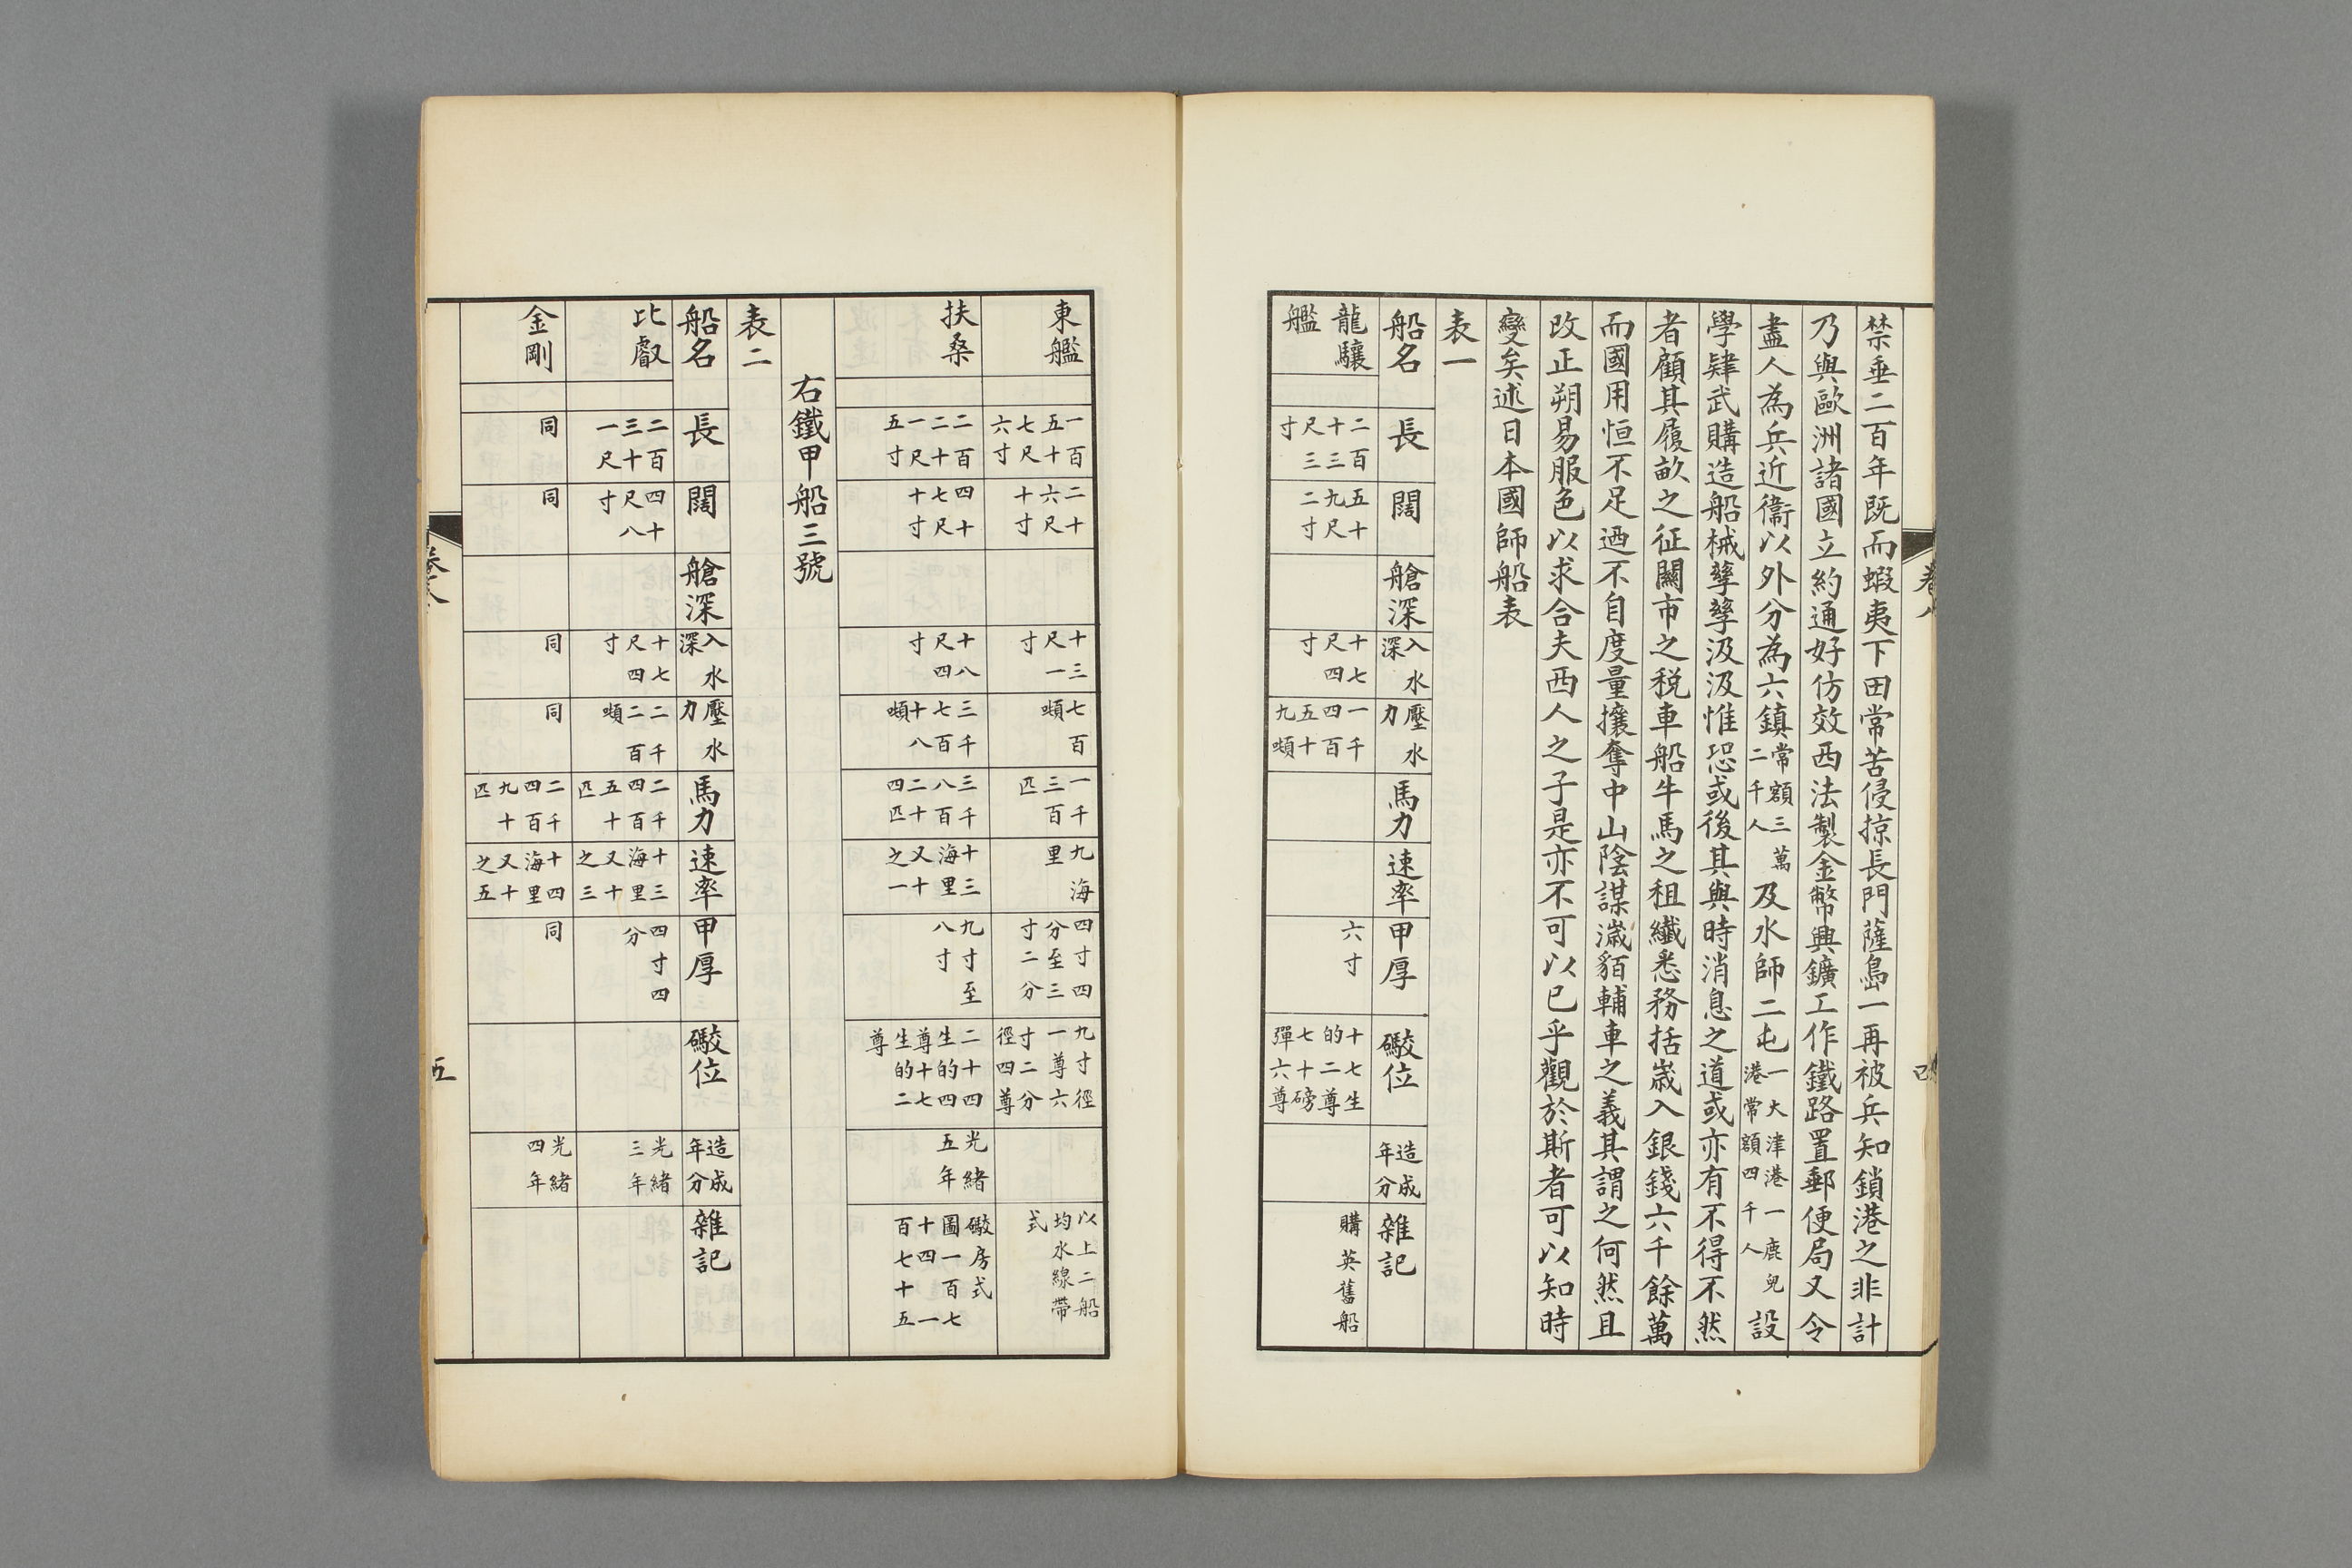 禁垂二百年既而蝦夷下田常苦侵掠長門薩島一再被兵知鎖港之非計
乃與歐洲諸國立約通好仿效西法製金幣興鑛工作鐵路置郵便局又令
盡人為兵近衞以外分為六鎮常額三萬二千人及水師二屯一大津港一鹿兒港常額四千人設
學肄武購造船械孳孳汲汲惟恐或後其與時消息之道或亦有不得不然
者顧其履畝之征關市之稅車船牛馬之租纖悉務括嵗入銀錢六千餘萬
而國用恒不足迺不自度量攘奪中山陰謀濊貊輔車之義其謂之何然且
改正朔易服色以求合夫西人之子是亦不可以已乎觀於斯者可以知時
變矣述日本國師船表
表一
船名 長 闊 艙深 入水深 壓水力 馬力 速率 甲厚 礮位 造成年分 雜記
龍驤艦 二百十三尺三寸 五十九尺二寸 十七尺四寸 一千四百五十九噸 六寸 十七生的二尊七十磅彈六尊 購英舊船
東艦 一百五十七尺六寸 二十六尺十寸 十三尺一寸 七百噸 一千三百匹 九海里 四寸四分至三寸二分 九寸徑一尊六寸二分徑四尊 以上二船均水線帶式
扶桑 二百二十二尺一寸五 四十七尺十寸 十八尺四寸 三千七百十八噸 三千八百二十四匹 十三海里又十之一 九寸至八寸 二十四生的四尊十七生的二尊 光緒五年 礮房式圖一百七十四一百七十五
右鐵甲船三號
表二
船名 長 闊 艙深 入水深 壓水力 馬力 速率 甲厚 礮位 造成年分 雜記
比叡 二百三十一尺 四十尺八寸 十七尺四寸 二千二百噸 二千四百五十匹 十三海里又十之三 四寸四分 光緒三年
金剛 同 同 同 同 二千四百九十匹 十四海里又十之五 同 光緒四年
卷八
四
五